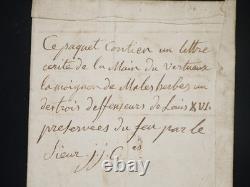 Ce paquet Contien un lettre
ecrite de la Main du Vertueux
lamoignon de Malesherbes un
des trois deffenseurs de Louis XVI.
preservées du feu par le
Sieur j.j. G
ebay.com